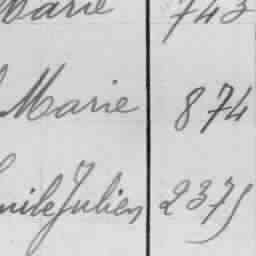 Marie 743
Marie 874
mile Julien 2375